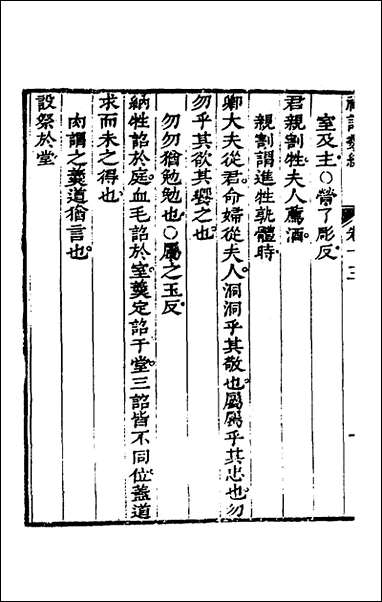 卷十三
室及主○膋了彫反
君親割牲夫人薦酒
親割謂進牲孰體時
卿大夫從君命婦從夫人洞洞乎其敬也屬屬乎其忠也勿
勿乎其欲其饗之也
勿勿猶勉勉也○屬之玉反
納牲詔於庭血毛詔於室羹定詔于堂三詔皆不同位蓋道
求而未之得也
肉謂之羹道猶言也
設祭於堂